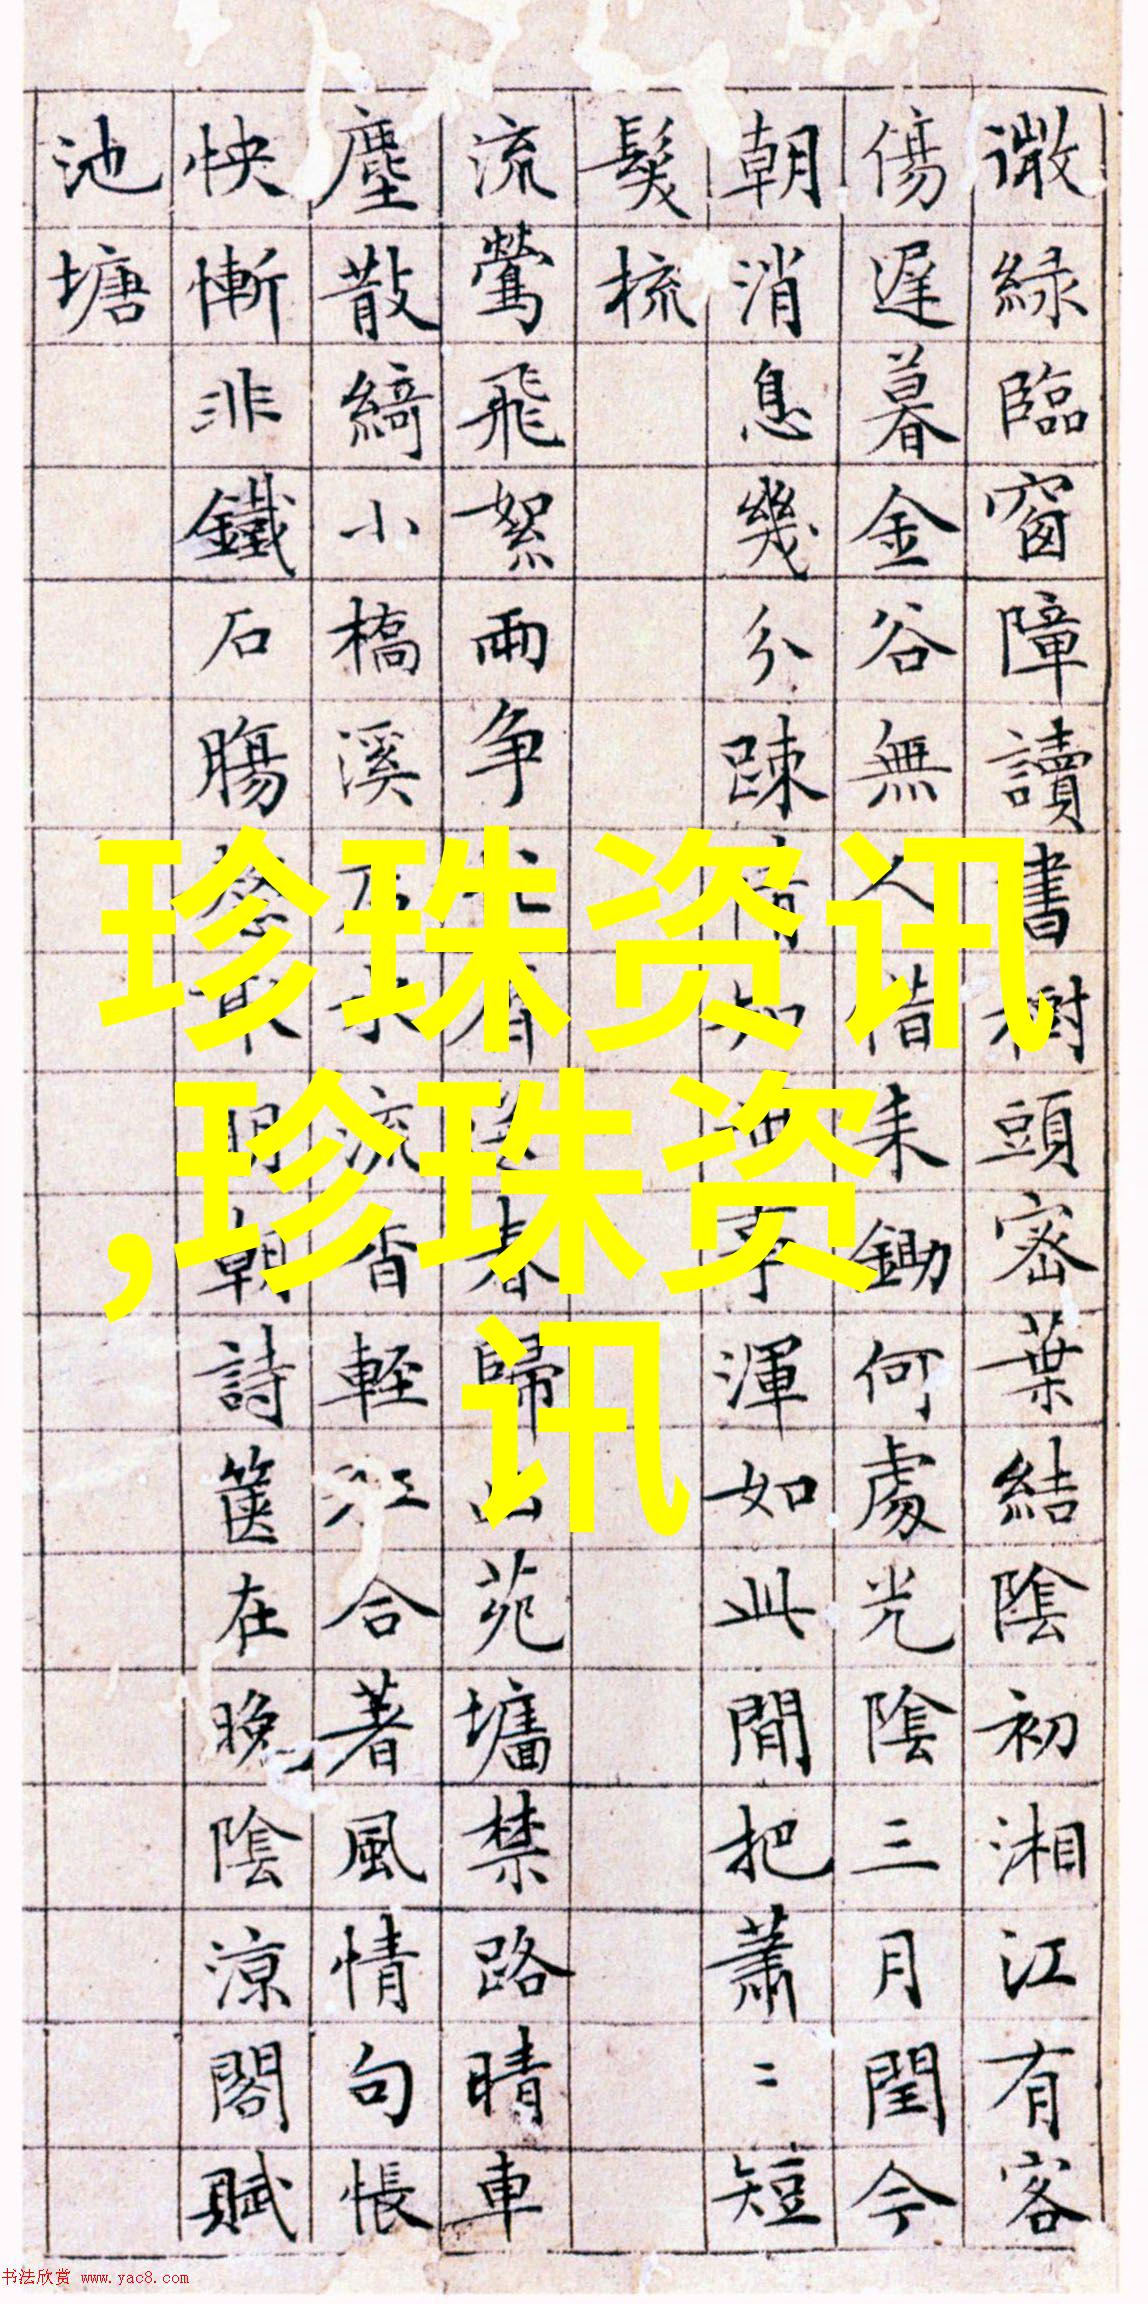 微綠臨窗障讀書樹頭密葉結陰初湘江有客
傷遲暮金谷無人借耒鋤何處光陰三月閏今
朝消息幾分疎情如無事渾如此閒把蕭〻短
鬓梳
流鶯飛絮兩争春歸苑墻禁路晴車
塵散綺小橋溪水流香輕江合著風情句悵
怏慚非鐵石腸明朝詩箧在晚陰涼閣賦
池塘
珍珠资讯
,珍珠资
讯
书法欣赏 www.yac8.com